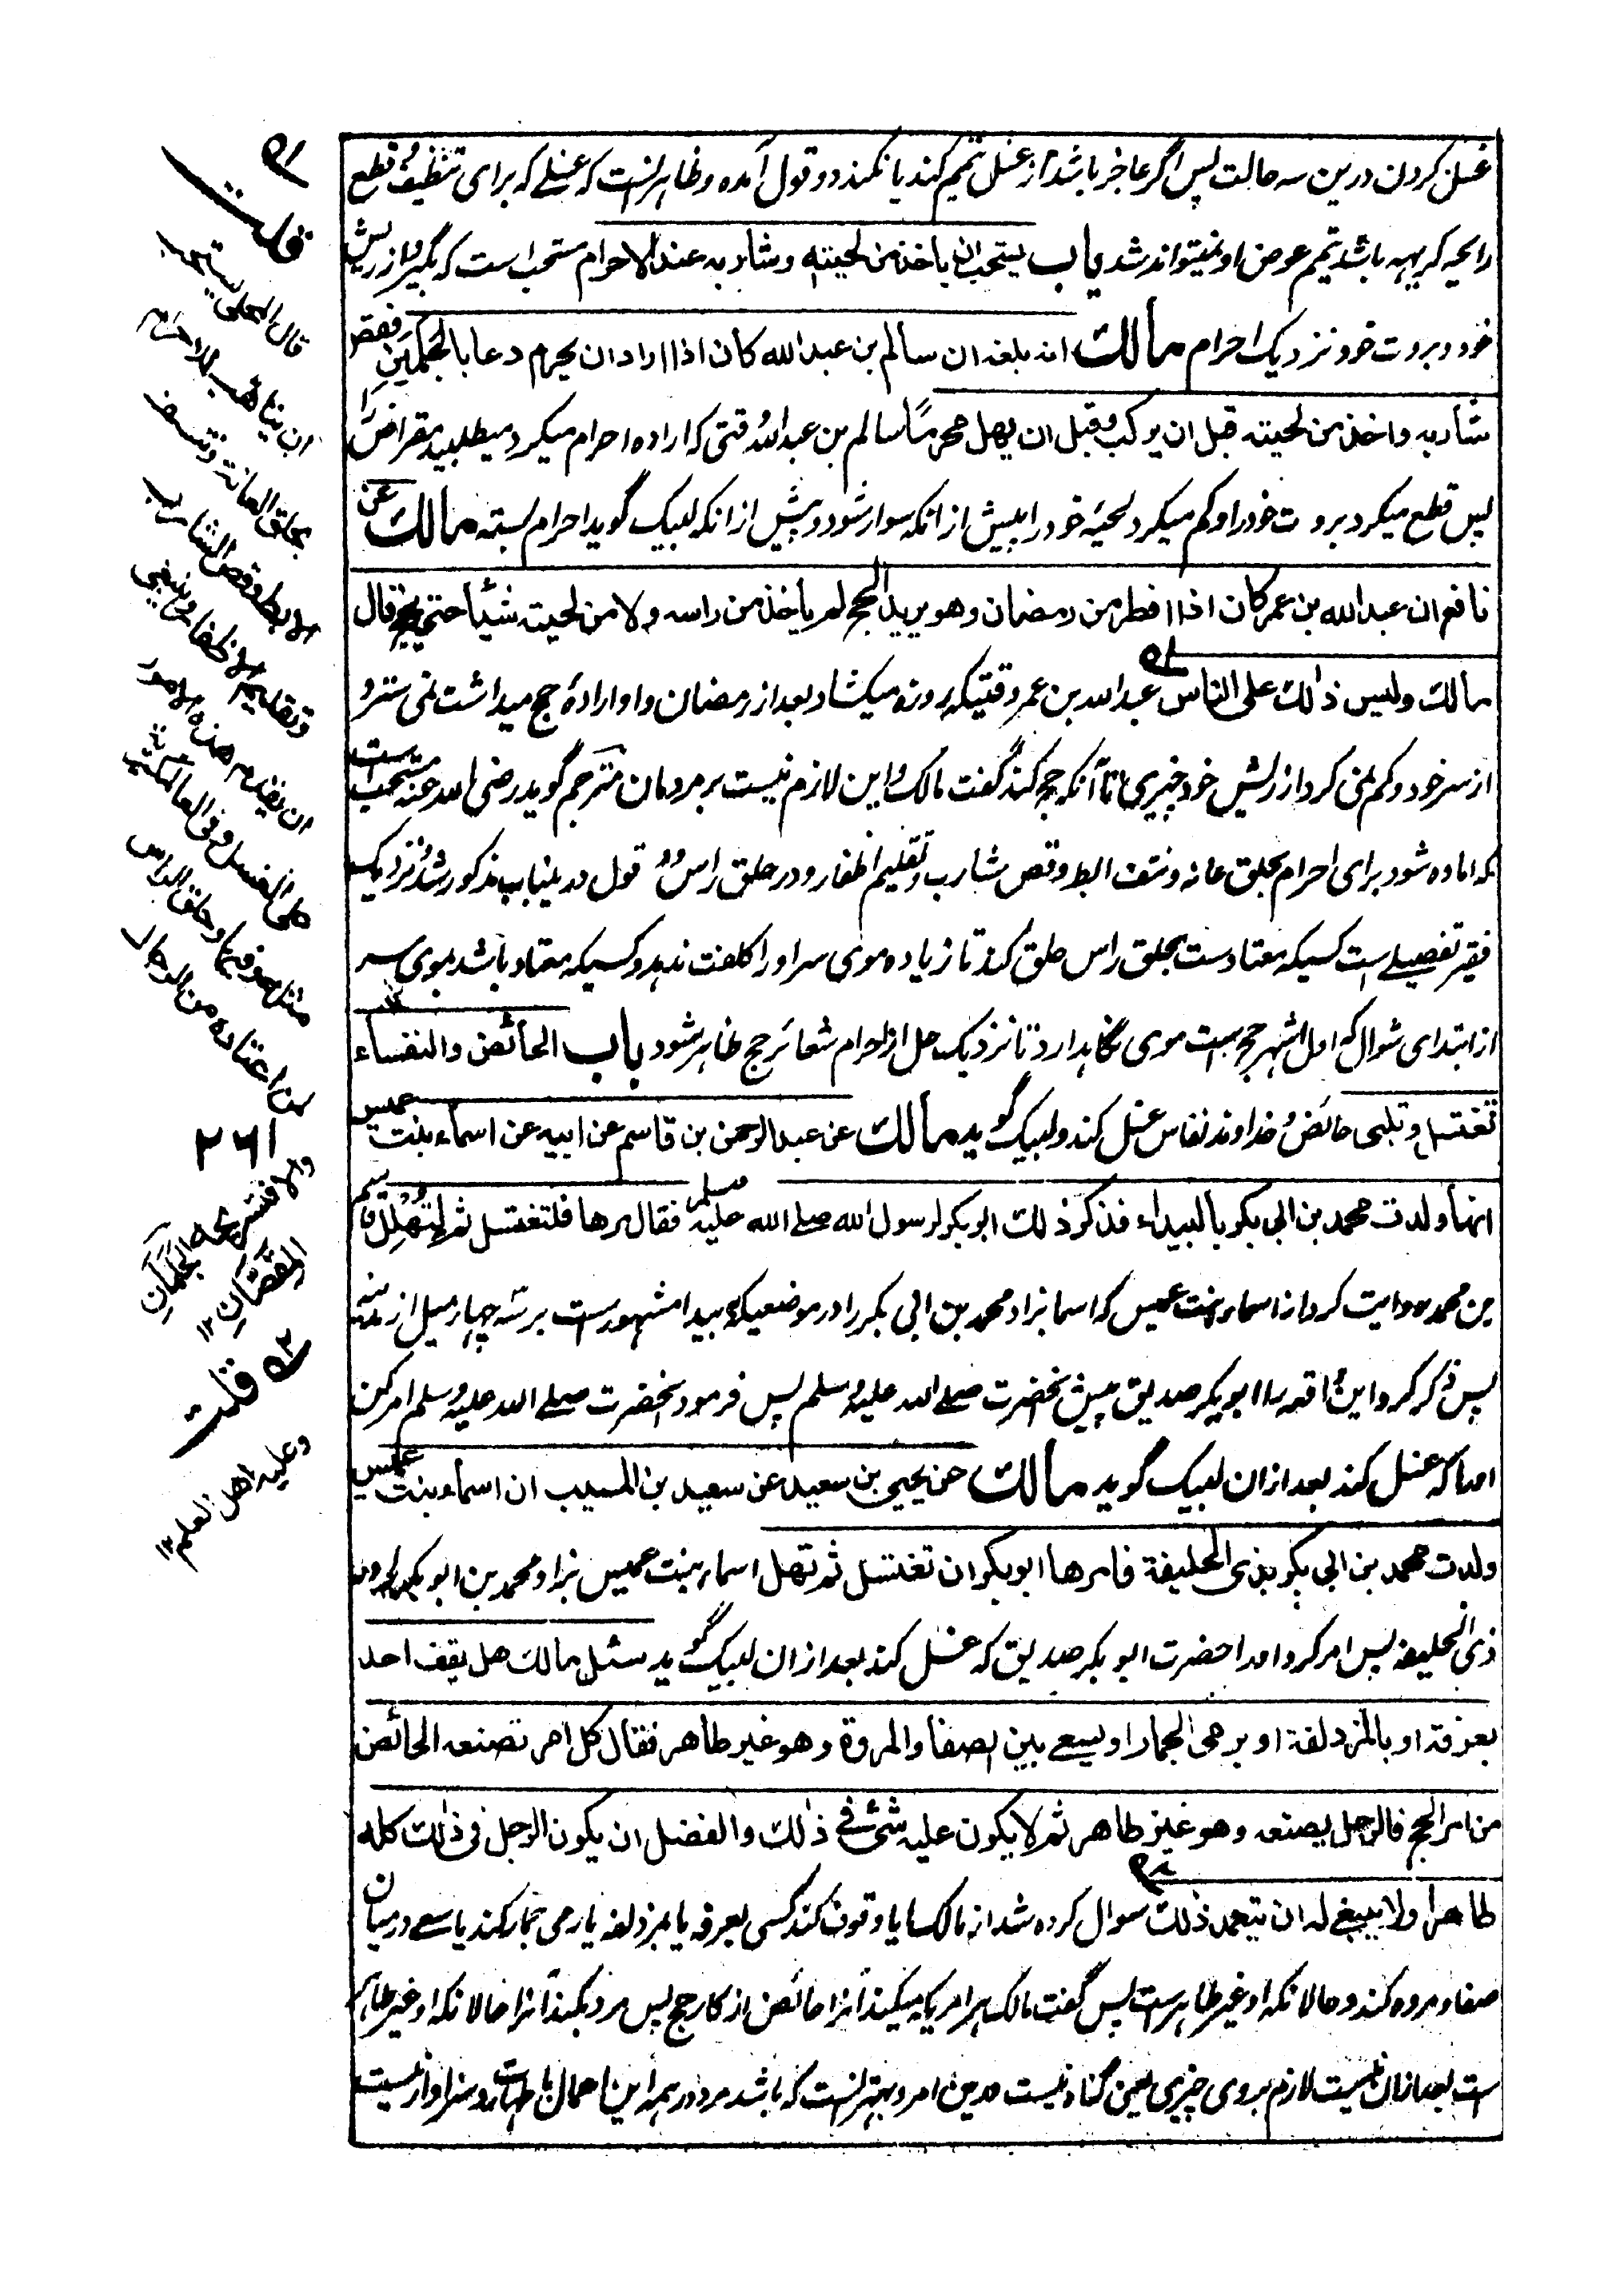 غسل کردن درین سه حالت پس اگر عاجز باشد از غسل تیمم کند یا نکند دو قول آمده و ظاهر آنست که غسلے که برای تنظیف و قطع
رایحه کریهه باشد تیمم عوض او نمیتواند شد باب یستحب ان یاخذ من لحیته و شاربه عند الاحرام مستحب است که بگیرد از ریش
خود و بروت خود نزدیک احرام مالک انه بلغه ان سالم بن عبد الله کان اذا اراد ان یحرم دعا بالجلمین فقص
شاربه واخذ من لحیته قبل ان یرکب وقبل ان یهل محرما سالم بن عبد الله وقتی که اراده احرام میکرد میطلبید مقراض را
پس قطع میکرد بروت خود را و کم میکرد لحیهٔ خود را پیش از انکه سوار شود و پیش از انکه لبیک گوید احرام بسته مالک عن
نافع ان عبد الله بن عمر کان اذا افطر من رمضان وهو یرید الحج لم یأخذ من راسه ولا من لحیته شیئا حتی یحج قال
مالک ولیس ذلک علی الناس عبد الله بن عمر وقتیکه روزه میکشاد بعد از رمضان و او ارادهٔ حج میداشت نمی سترد
از سر خود و کم نمی کرد از ریش خود چیزی تا آنکه حج کند گفت مالک و این لازم نیست بر مردمان مترجم گوید رضی الله عنه مستحب است
که اماده شود برای احرام بحلق عانه و نتف ابط و قص شارب و تقلیم اظفار و در حلق راس دو قول درینباب مذکور شد و نزدیک
فقیر تفصیلے است کسیکه معتاد ست بحلق راس حلق کند تا زیاده موی سر او را کلفت ندهد و کسیکه معتاد باشد بموی سر
از ابتدای شوال که اول اشهر حج ست موی نگاهدارد تا نزدیک حل از احرام شعائر حج ظاهر شود باب الحائض والنفساء
تغتسل وتلبی حائض و خداوند نفاس غسل کند و لبیک گوید مالک عن عبد الرحمن بن قاسم عن ابیه عن اسماء بنت عمیس
انها ولدت محمد بن ابی بکر بالبیداء فذکر ذلک ابو بکر لرسول الله صلے الله علیه وسلم فقال مرها فلتغتسل ثم لتهلل قاسم
بن محمد روایت کرد از اسماء بنت عمیس که اسما بزاد محمد بن ابی بکر را در موضعیکه به بیدا مشهورست بر سه چهار میل از مدینه
پس ذکر کرد این واقعه را ابوبکر صدیق پیش آنحضرت صلے الله علیه وسلم پس فرمود آنحضرت صلے الله علیه وسلم امر کن
او را که غسل کند بعد از ان لبیک گوید مالک عن یحیی بن سعید عن سعید بن المسیب ان اسماء بنت عمیس
ولدت محمد بن ابی بکر بذی الحلیفة فامرها ابو بکر ان تغتسل ثم تهل اسماء بنت عمیس بزاد محمد بن ابو بکر را در
ذی الحلیفه پس امر کرد او را حضرت ابو بکر صدیق که غسل کند بعد از ان لبیک گوید سئل مالک هل یقف احد
بعرفة او بالمزدلفة او یرمی الجمار او یسعے بین الصفا والمروة وهو غیر طاهر فقال کل امر تصنعه الحائض
من امر الحج فالرجل یصنعه وهو غیر طاهر ثم لا یکون علیه شئ فے ذلک والفضل ان یکون الرجل فی ذلک کله
طاهرا ولا ینبغے له ان یتعمد ذلک سوال کرده شد از مالک آیا وقوف کند کسی بعرفه یا بمزدلفه یا رمی جمار کند یا سعے درمیان
صفا و مروه کند و حالانکه او غیر طاهر ست پس گفت مالک هر امریکه میکند آنرا حائض از کار حج پس مرد بکند آنرا حالانکه او غیر طاهر
است بعد از ان نیست لازم بروی چیزی یعنی گناه نیست درین امر و بهتر آنست که باشد مرد در همه این اعمال با طهارت و سزاوار نیست
۵۱
قلت
قال المحلی یستحب
ان یتأهب للاحرام
بحلق العانة ونتف
الابط وقص الشارب
وتقلیم الاظفار وینبغی
ان یقدم هذه الامور
علی الغسل وفی العالمگیریة
مثله وفیها وحلق الراس
لمن اعتاده من الرجال
۲۶۱
والا فتسریحه الجلمان
المقصان ۱۲
۵۲ قلت
وعلیه اهل العلم ۱۲